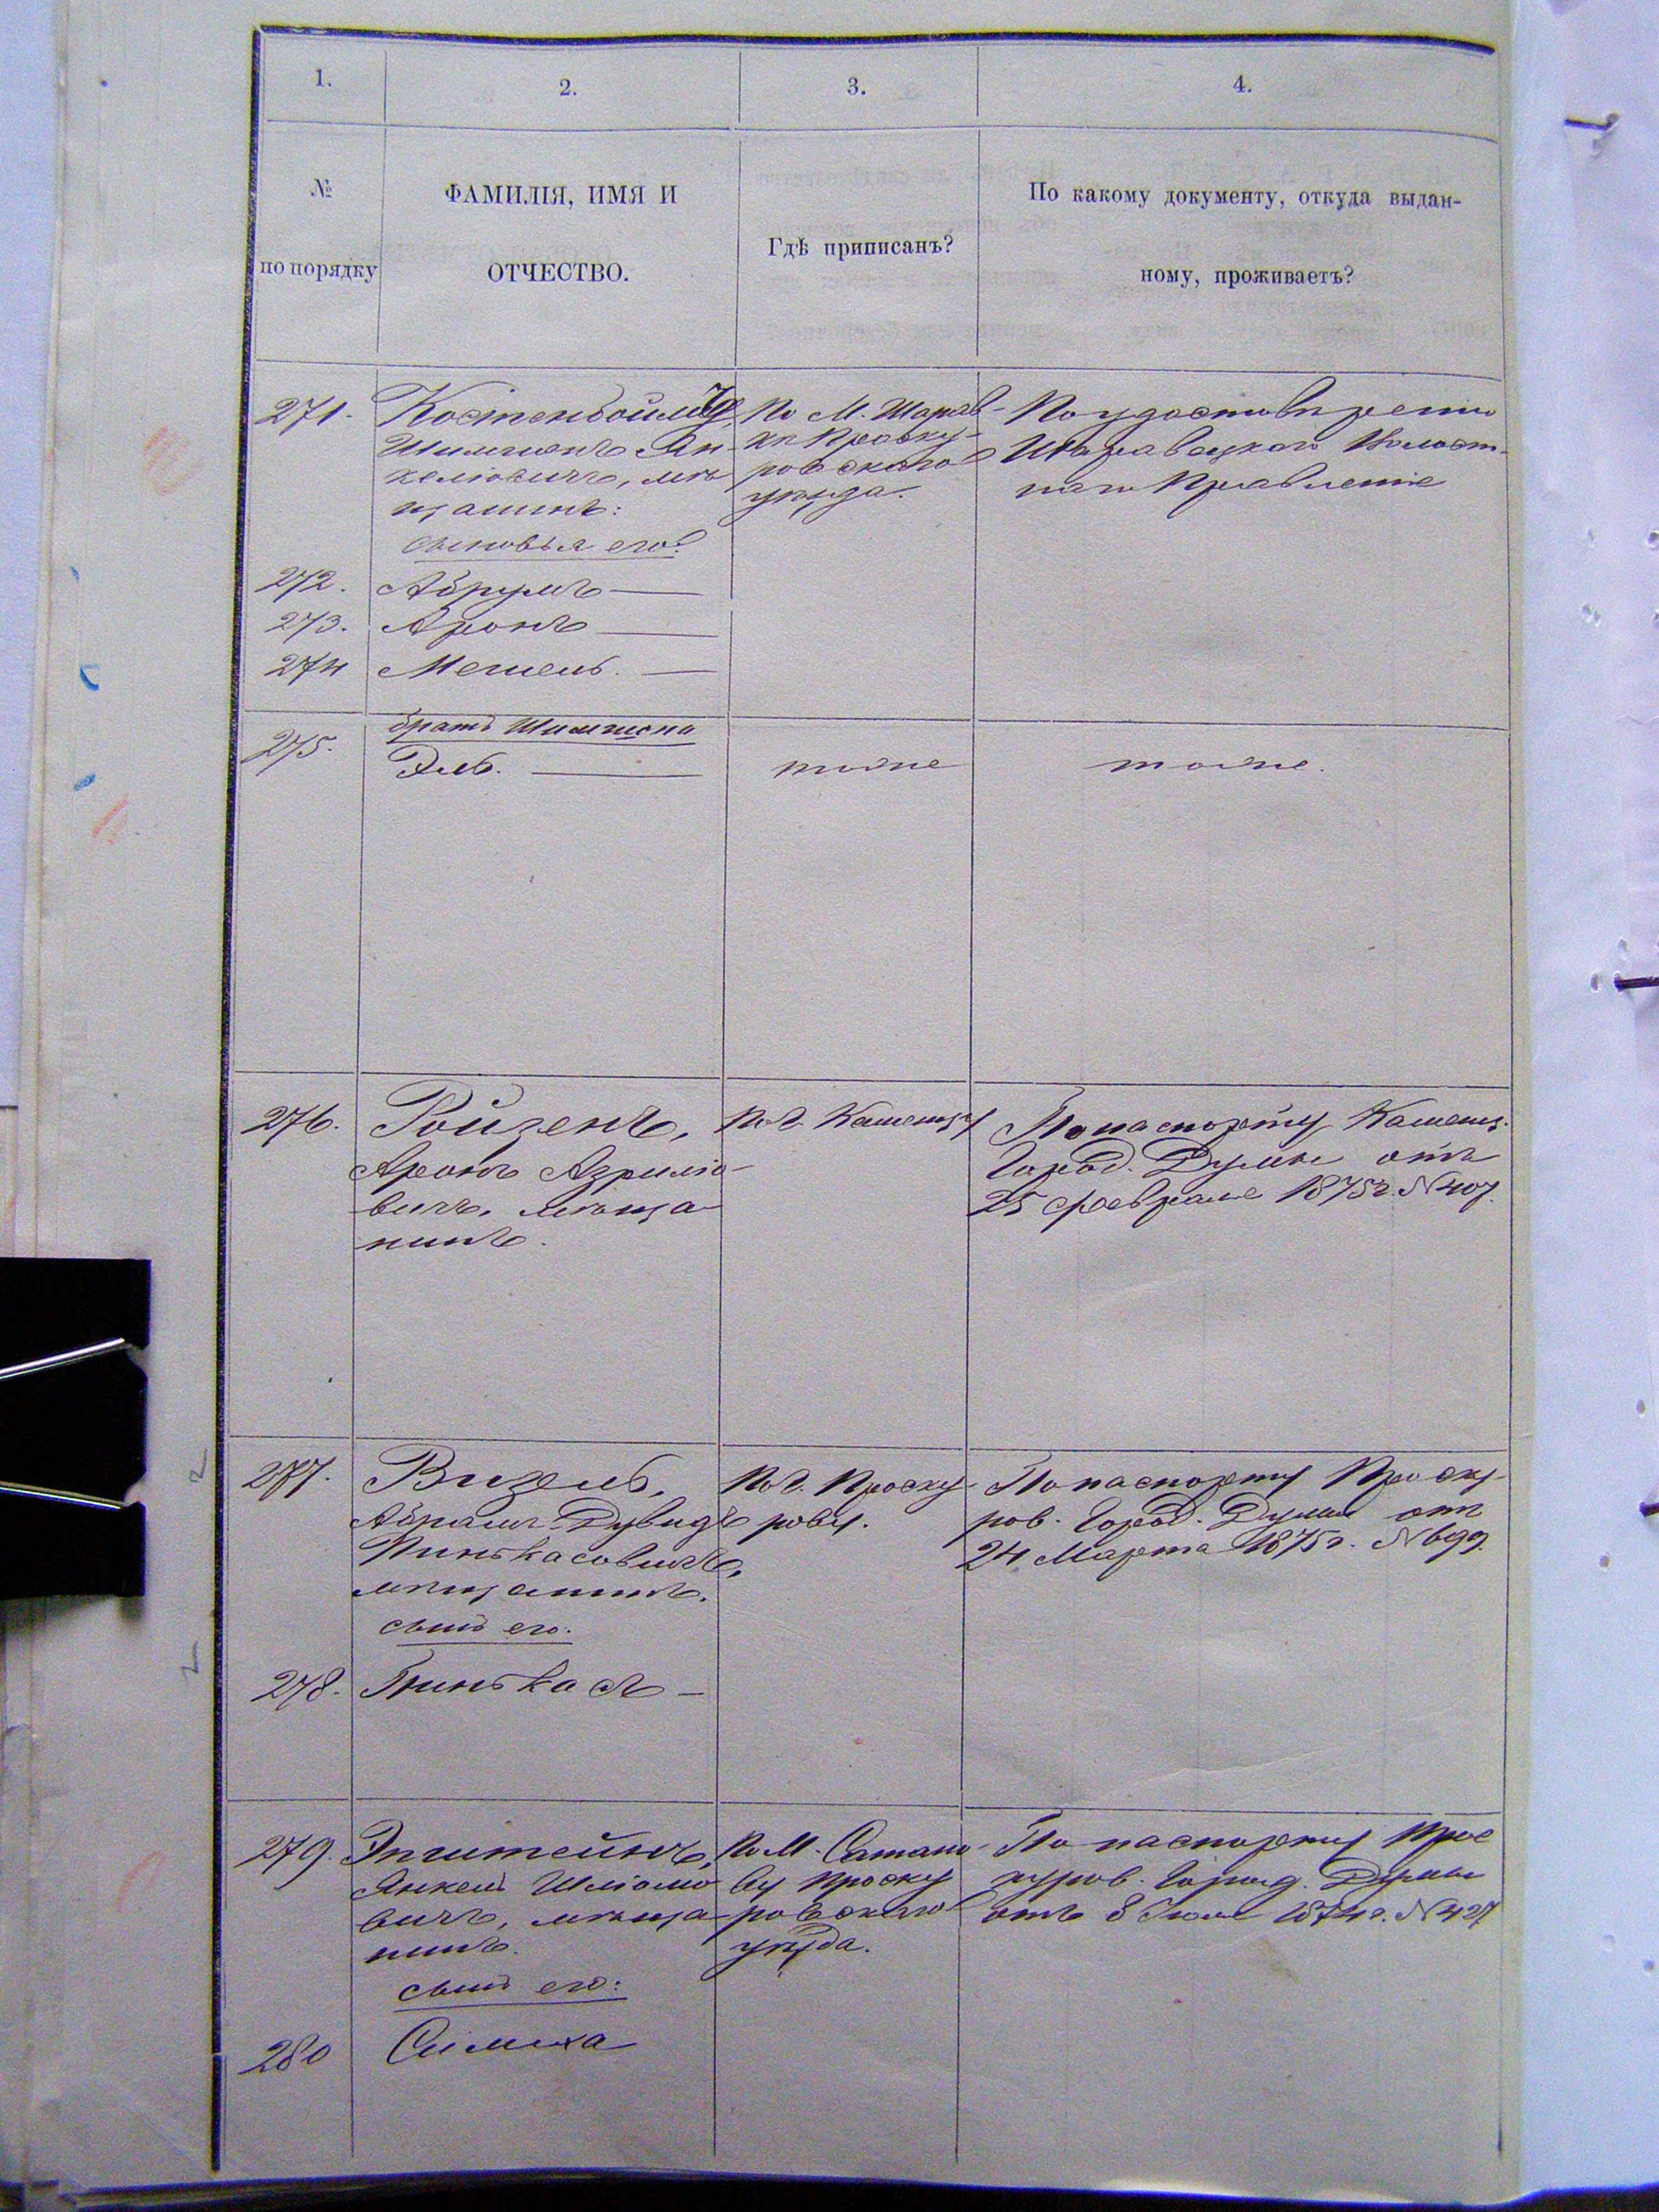 1. 2. 3. 4.
№ по порядку
ФАМИЛІЯ, ИМЯ И
ОТЧЕСТВО.
Гдѣ приписанъ?
По какому документу, откуда выдан-
ному, проживаетъ?
271.
Шимшонъ Ян-
келіовичъ, мѣ-
щанинъ:
сыновья его:
По М. Шарав-
кѣ Проску-
ровскаго
уѣзда.
По удостовѣренію
Шаравецкаго Волост-
наго Правленія
272. Абрумъ —
273. Аронъ —
274 Мешель. —
275.
братъ Шимшона
Эль. —
тоже
тоже.
276. Ройзенъ,
Аронъ Азриліо-
вичъ, мѣща-
нинъ.
По г. Каменцу
По паспорту Каменц.
Город. Думы отъ
25 февраля 1875 г. № 407.
277. Визель,
Абрамъ-Дувидъ
Пиньkасовичъ,
мѣщанинъ.
сынъ его.
По г. Проску-
рову.
По паспорту Проску-
ров. Город. Думы отъ
24 Марта 1875 г. № 699.
278. Пиньkасъ —
279. Эпштейнъ,
Янкель Шліомо
вичъ, мѣща-
нинъ.
сынъ его:
По М. Сатано-
ву Проску
ровскаго
уѣзда.
По паспорту Прос
куров. Город. Думы
отъ 8 1874 г. № 427
280 Симха